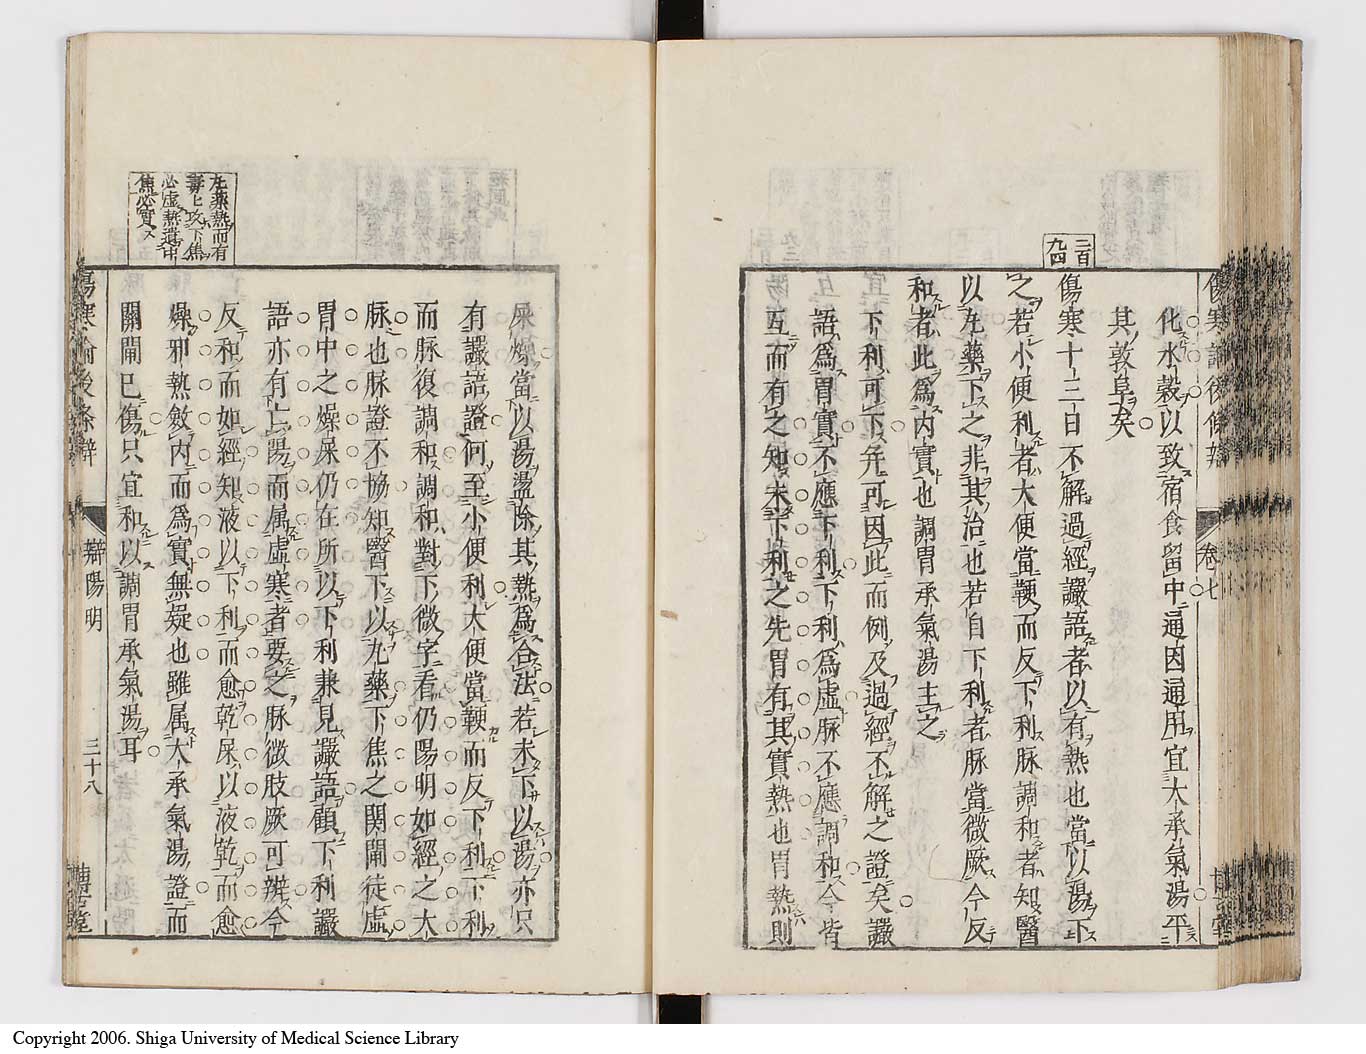 傷寒論後條辯
卷七
化水穀以致宿食留中通因通用宜大承氣湯平
其敦阜矣
三百
九四
傷寒十三日不解過經讝語者以有熱也當以湯下
之若小便利者大便當鞕而反下利脉調和者知醫
以丸藥下之非其治也若自下利者脉當微厥今反
和者此爲内實也調胃承氣湯主之
下利可下弁可因此而例及過經不解之證矣讝
語爲胃實不應下利下利爲虛脉不應調和今皆
互而有之知未下利之先胃有其實熱也胃熱則
屎燥當以湯盪除其熱爲合法若未下以湯亦只
有讝語證何至小便利大便當鞕而反下利下利
而脉復調和調和對下微字看仍陽明如經之大
脉也脉證不協知醫下以丸藥下焦之関閘徒虛
胃中之燥屎仍在所以下利兼見讝語顧下利讝
語亦有亡陽而属虛寒者要之脉微肢厥可辨今
反和而如經知液以下利而愈乾屎以液乾而愈
燥邪熱斂内而爲實無疑也雖属大承氣湯證而
關閘已傷只宜和以調胃承氣湯耳
丸藥熱而有
毒上攻下焦
必虛熱遺中
焦必實
傷寒論後條辯
辯陽明
三十八
博古堂